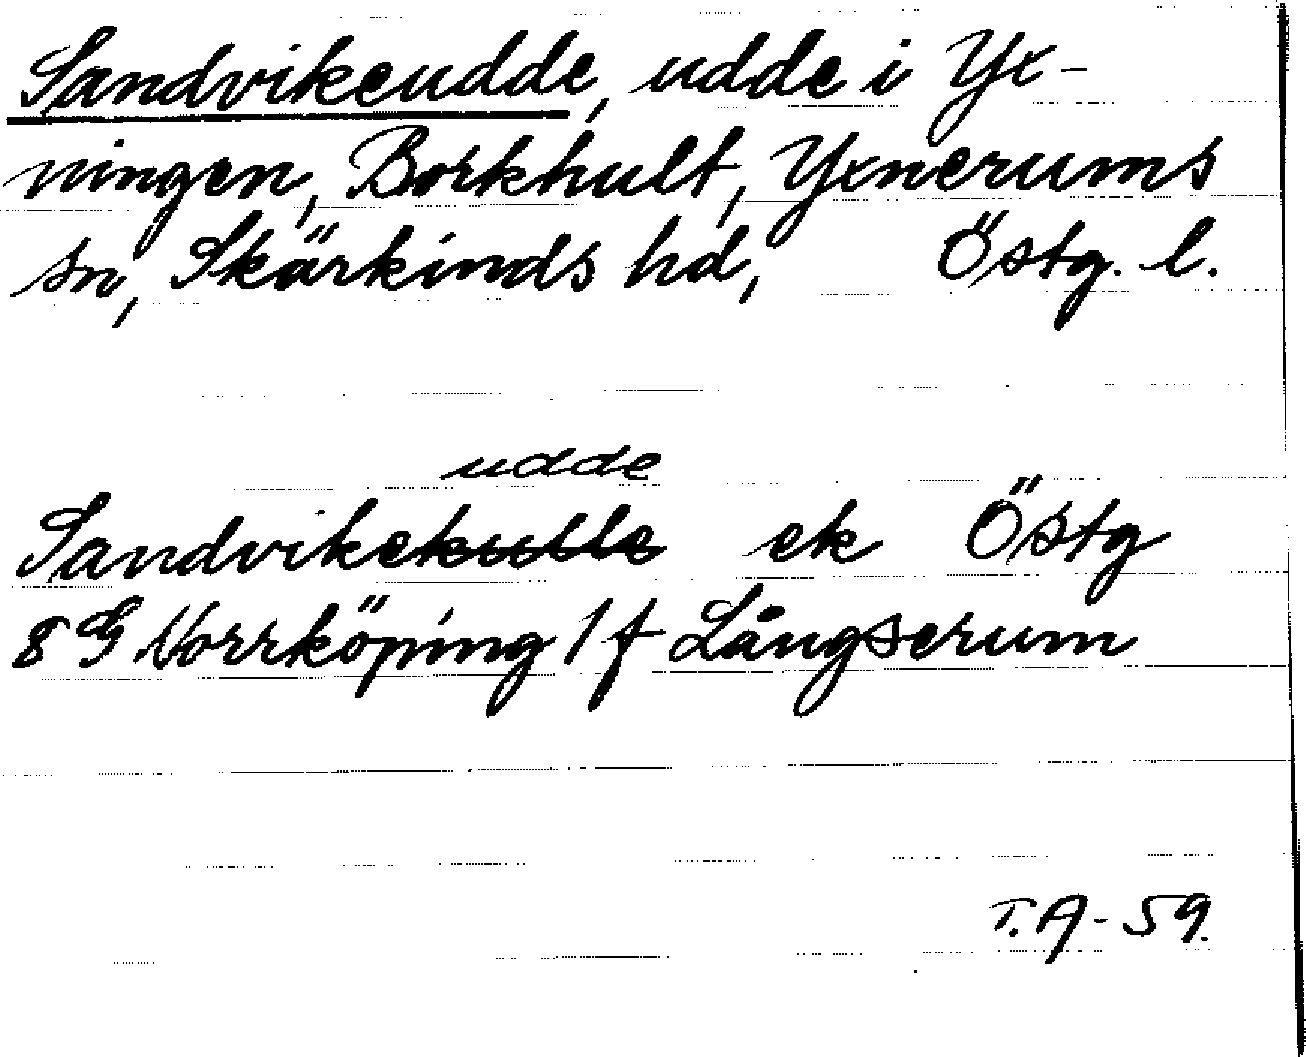 Sandvikeudde, udde i Yx-
ningen, Borkhult, Yxnerums
sn, Skärkinds hd, Östg. l.
udde
Sandvikekulle ek Östg
8 G Norrköping 1 f Långserum
T.A-59.